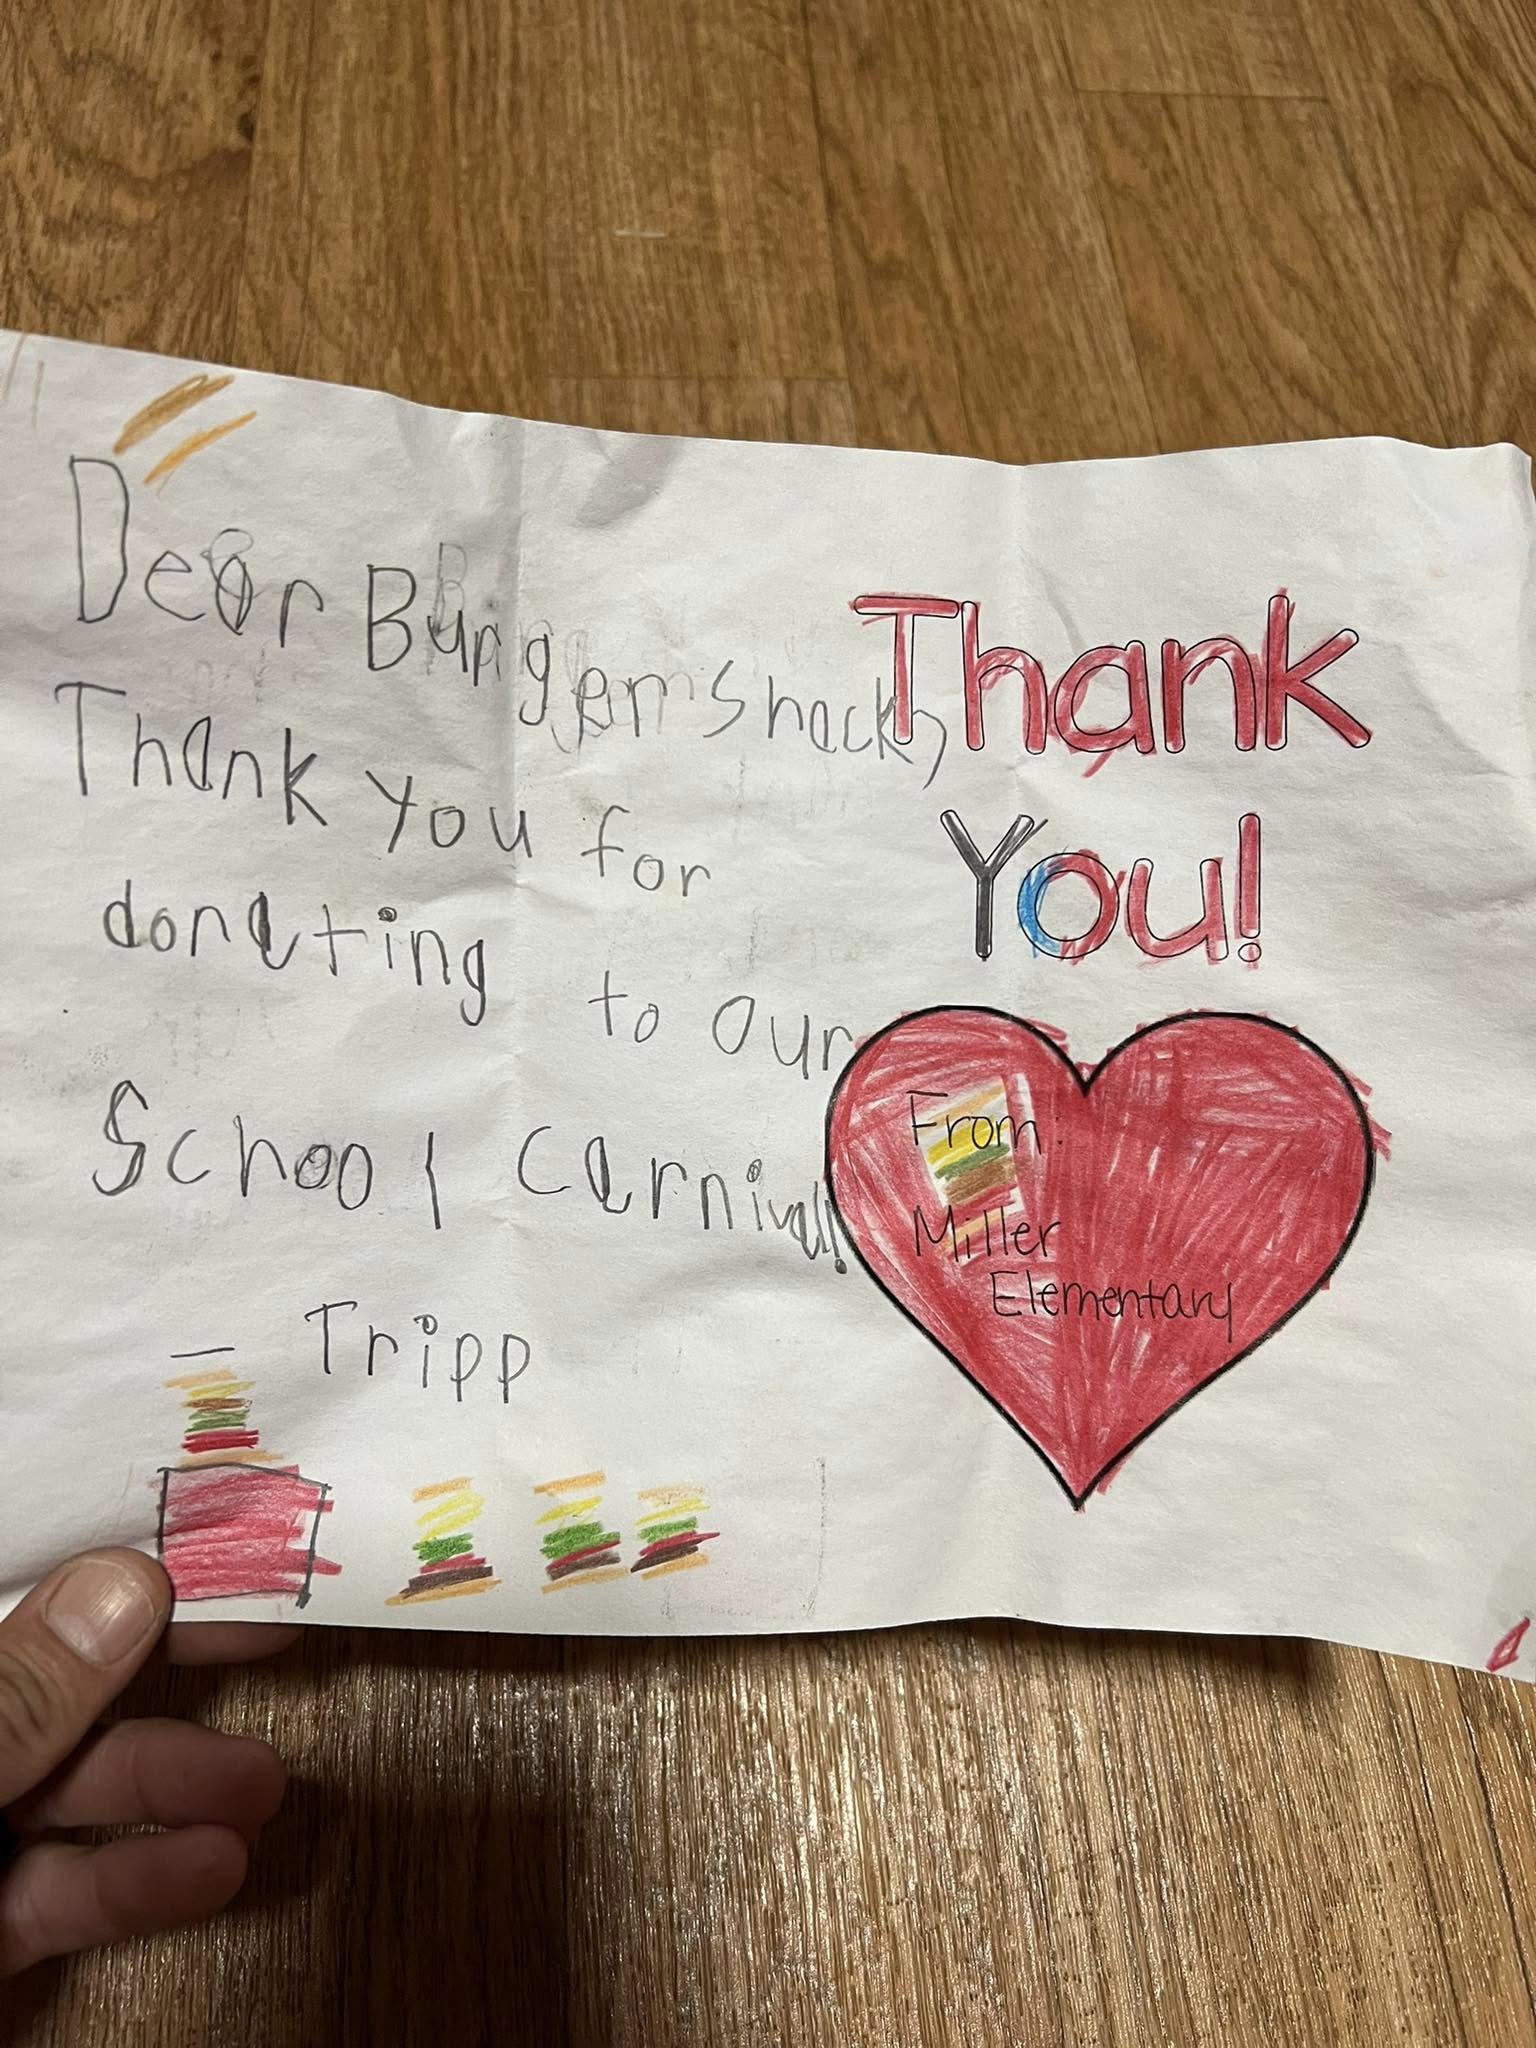 Dear Burger Shack,
Thank you for
donating to our
School Carnival!
— Tripp
Thank
You!
From:
Miller
Elementary